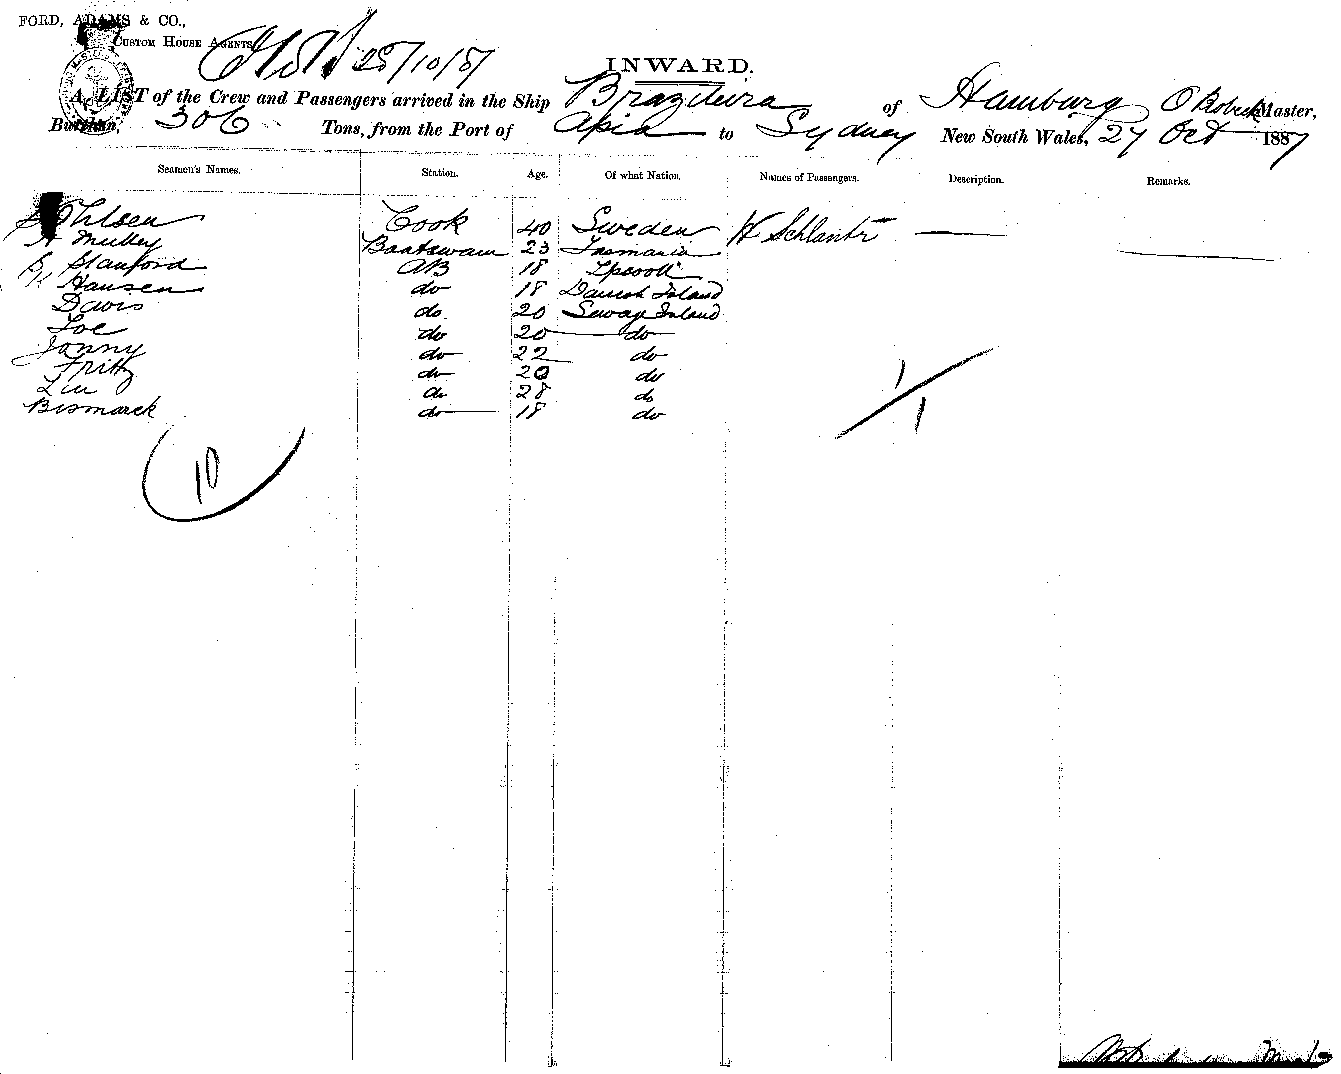 FORD, ADAMS & CO.,
CUSTOM HOUSE AGENTS
28/10/87
INWARD.
A LIST of the Crew and Passengers arrived in the Ship Brazileira of Hamburg Master,
Burthen, 306 Tons, from the Port of Apia to Sydney New South Wales, 27 Oct 1887
Seamen's Names. Station. Age. Of what Nation. Names of Passengers. Description. Remarks.
Ohlsen Cook 40 Sweden H Schlantr
Boatswain 23 Tasmania
Stanford AB 18
Hansen do 18 Danish Island
Davis do. 20 Savage Island
Joe do 20 do
Jonny do 22 do
Fritz do 20 do
do 28 do
Bismarck do 18 do
1/1
10